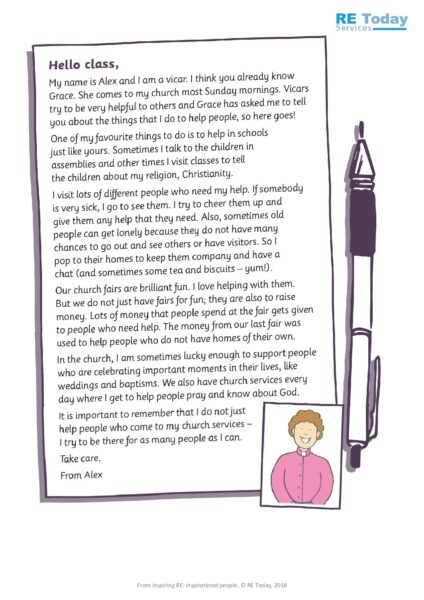 RE Today
Services
Hello class,
My name is Alex and I am a vicar. I think you already know
Grace. She comes to my church most Sunday mornings. Vicars
try to be very helpful to others and Grace has asked me to tell
you about the things that I do to help people, so here goes!
One of my favourite things to do is to help in schools
just like yours. Sometimes I talk to the children in
assemblies and other times I visit classes to tell
the children about my religion, Christianity.
I visit lots of different people who need my help. If somebody
is very sick, I go to see them. I try to cheer them up and
give them any help that they need. Also, sometimes old
people can get lonely because they do not have many
chances to go out and see others or have visitors. So I
pop to their homes to keep them company and have a
chat (and sometimes some tea and biscuits – yum!).
Our church fairs are brilliant fun. I love helping with them.
But we do not just have fairs for fun; they are also to raise
money. Lots of money that people spend at the fair gets given
to people who need help. The money from our last fair was
used to help people who do not have homes of their own.
In the church, I am sometimes lucky enough to support people
who are celebrating important moments in their lives, like
weddings and baptisms. We also have church services every
day where I get to help people pray and know about God.
It is important to remember that I do not just
help people who come to my church services –
I try to be there for as many people as I can.
Take care.
From Alex
From Inspiring RE: inspirational people, © RE Today, 2018